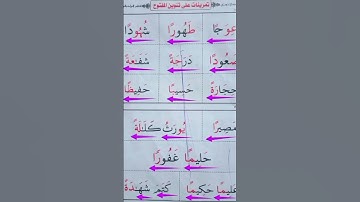 تمرينات على تنوين المفتوح
عِوَجًا طَهُورًا شُهُودًا
صَعُودًا دَرَجَةً شَفَعَةً
حِجَارَةً حَسِيبًا حَفِيظًا
مَصِيرًا يُورَثُ كَلَٰلَةً
حَلِيمًا غَفُورًا
عَلِيمًا حَكِيمًا كَتَمَ شَهَٰدَةً